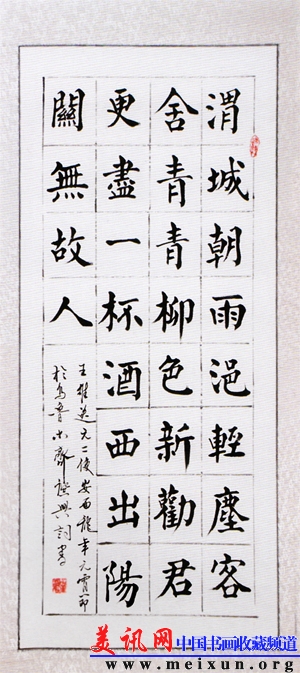 渭城朝雨浥輕塵客
舍青青柳色新勸君
更盡一杯酒西出陽
關無故人
王維送元二使安西龍年元宵節
於烏魯木齊
美讯网 中国书画收藏频道
www.meixun.org